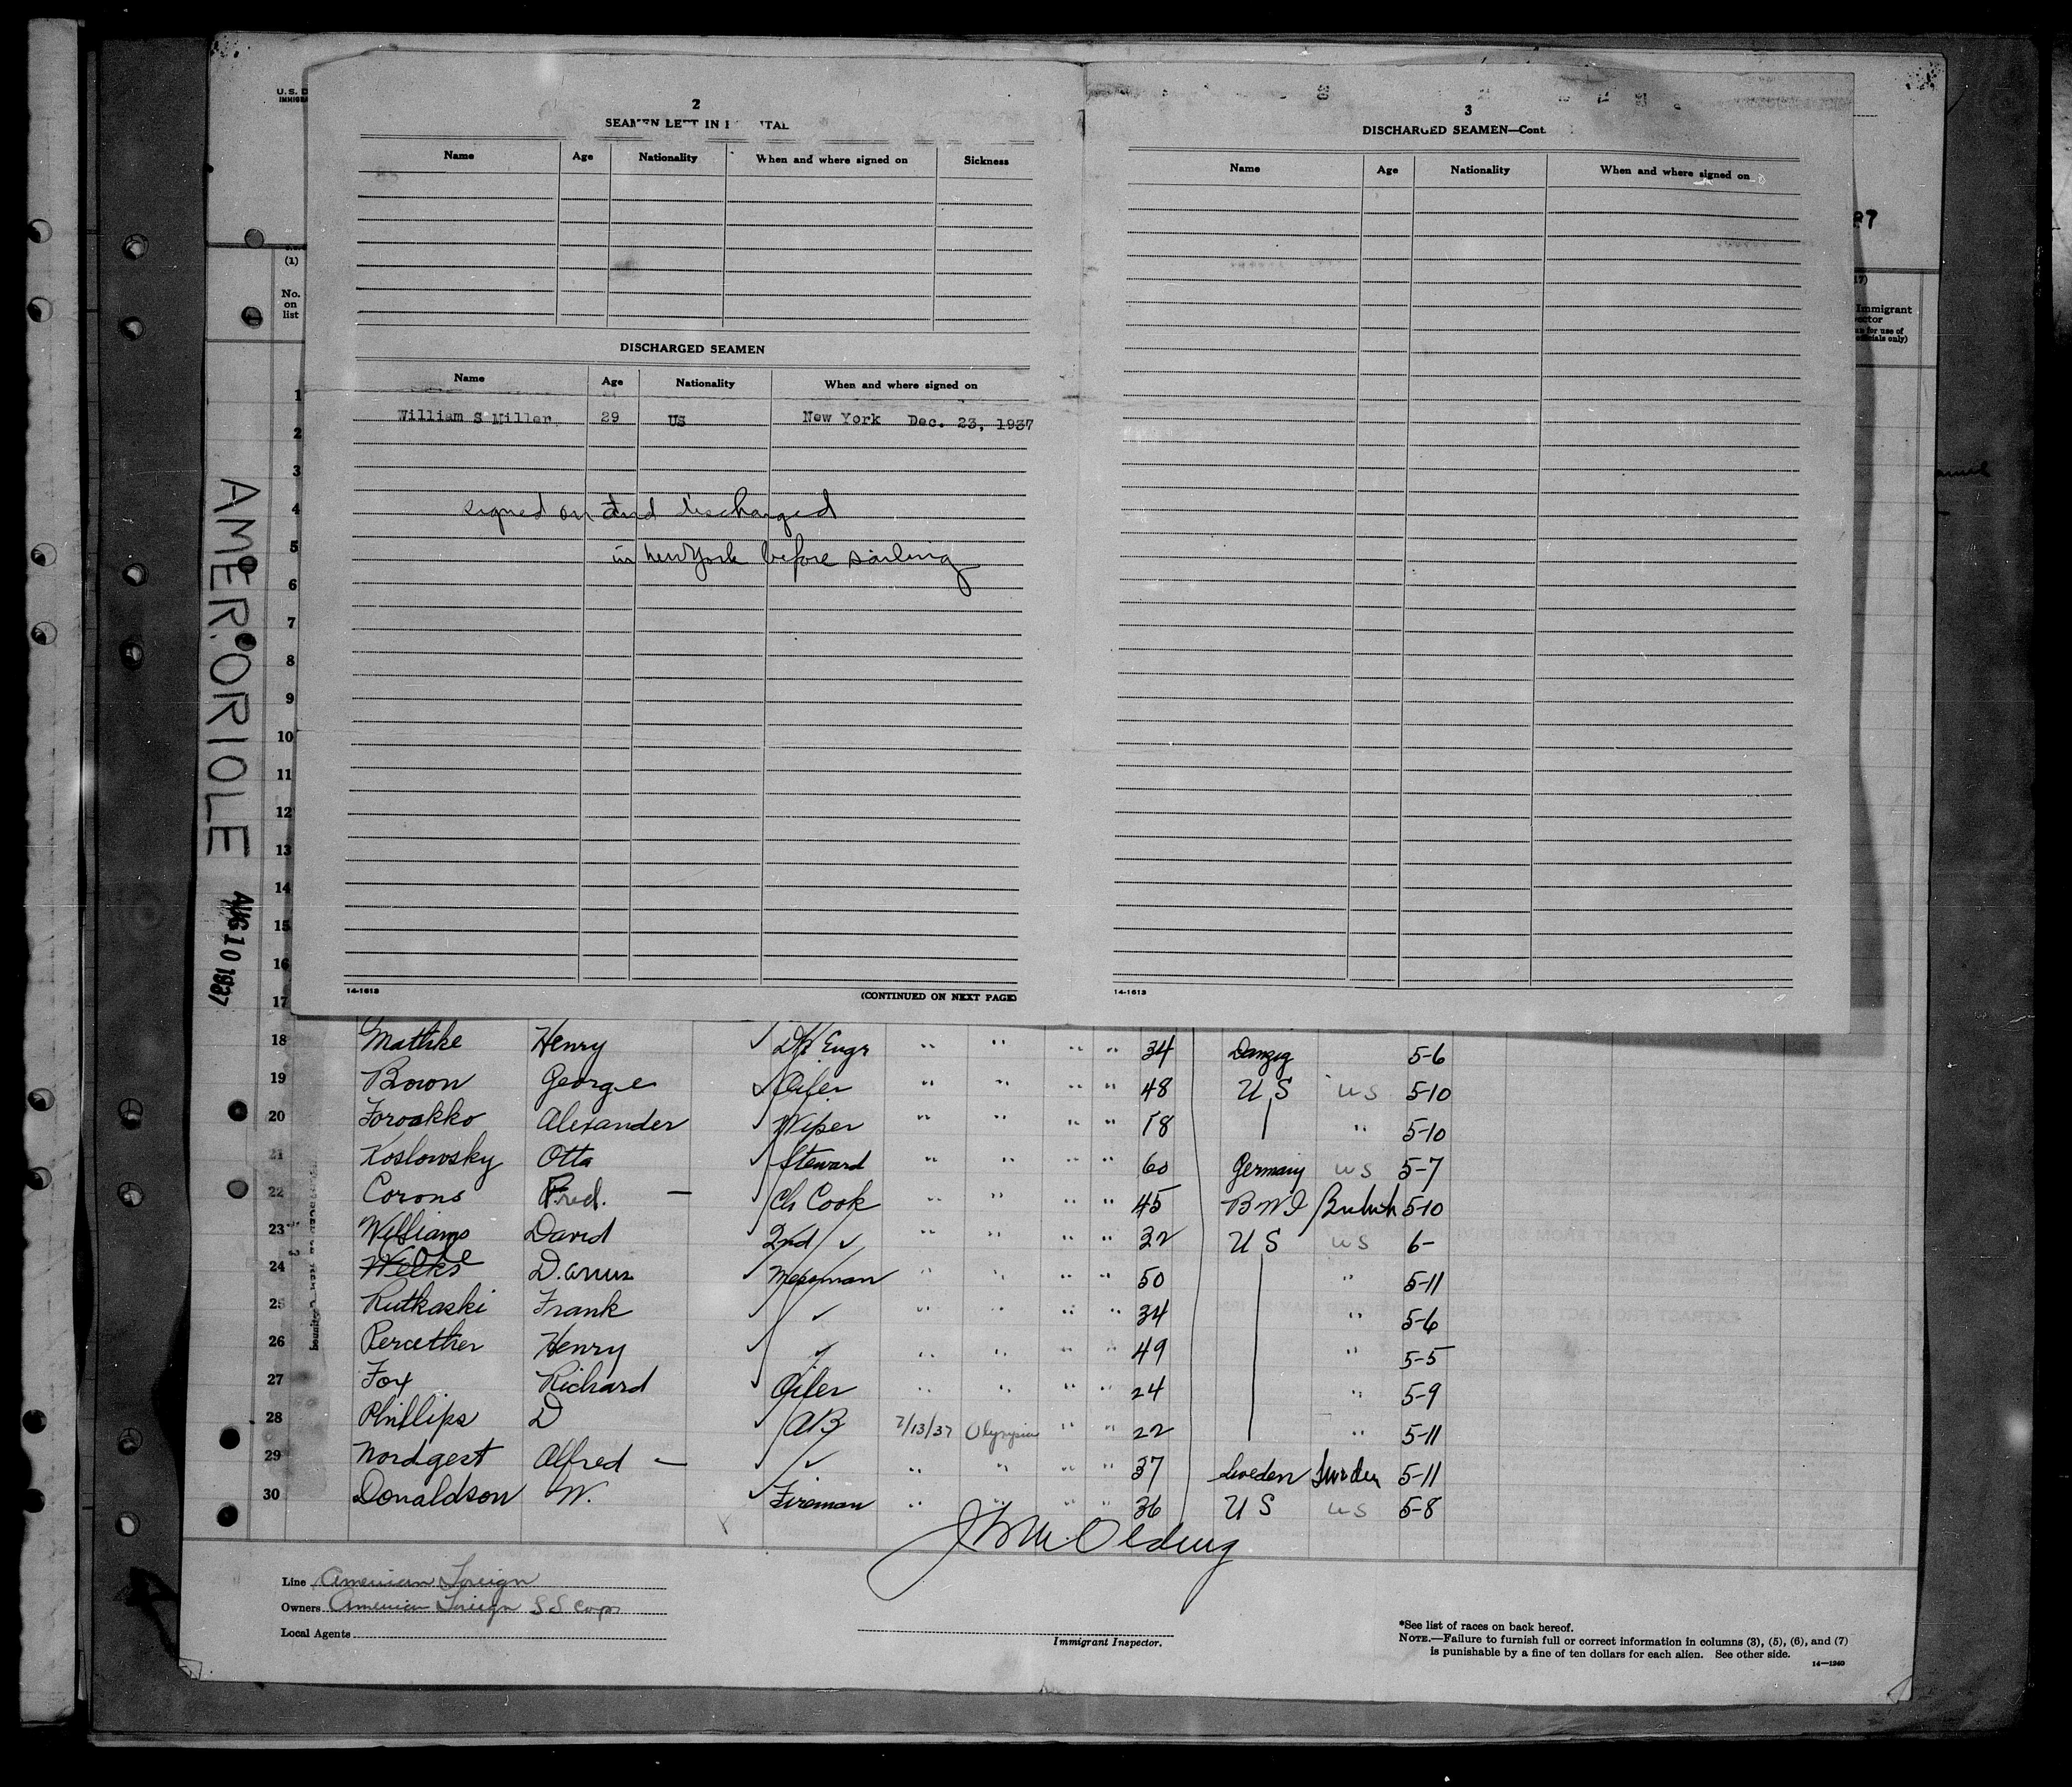 U.S. D
IMMIGRA
2
SEAMEN LEFT IN HOSPITAL
Name Age Nationality When and where signed on Sickness
DISCHARGED SEAMEN
Name Age Nationality When and where signed on
William S Miller. 29 US New York Dec. 23, 1937
signed on and discharged
in New York before sailing
14-1613 (CONTINUED ON NEXT PAGE)
3
DISCHARGED SEAMEN—Cont.
Name Age Nationality When and where signed on
14-1613
(1)
No.
on
list
1
2
3
4
5
6
7
8
9
10
11
12
13
14
15
16
17
AMER. ORIOLE
AUG 10 1937
17)
Immigrant
(officials only)
18 Mathke Henry Dk Engr " " " " 34 Danzig 5-6
19 Bown George Oiler " " " " 48 U S US 5-10
20 Foroakko Alexander Wiper " " " 18 " 5-10
21 Koslowsky Otto Steward " " " " 60 Germany US 5-7
22 Corons Fred. — Ch Cook " " " " 45 B W I British 5-10
23 Williams David 2nd ✓ " " " " 32 U S US 6-
24 Darius Messman " " " " 50 " 5-11
25 Rutkaski Frank ✓ " " " " 34 " 5-6
26 Percether Henry ✓ " " " " 49 " 5-5
27 Fox Richard Oiler " " " " 24 " 5-9
28 Phillips D AB 7/13/37 Olympia " " 22 " 5-11
29 Nordgest Alfred — ✓ " " " " 37 Sweden Sweden 5-11
30 Donaldson W. Fireman " " " " 36 U S US 5-8
Line American Foreign
Owners American Foreign S S Corp
Local Agents
Immigrant Inspector.
*See list of races on back hereof.
NOTE.—Failure to furnish full or correct information in columns (3), (5), (6), and (7)
is punishable by a fine of ten dollars for each alien. See other side.
14—1240